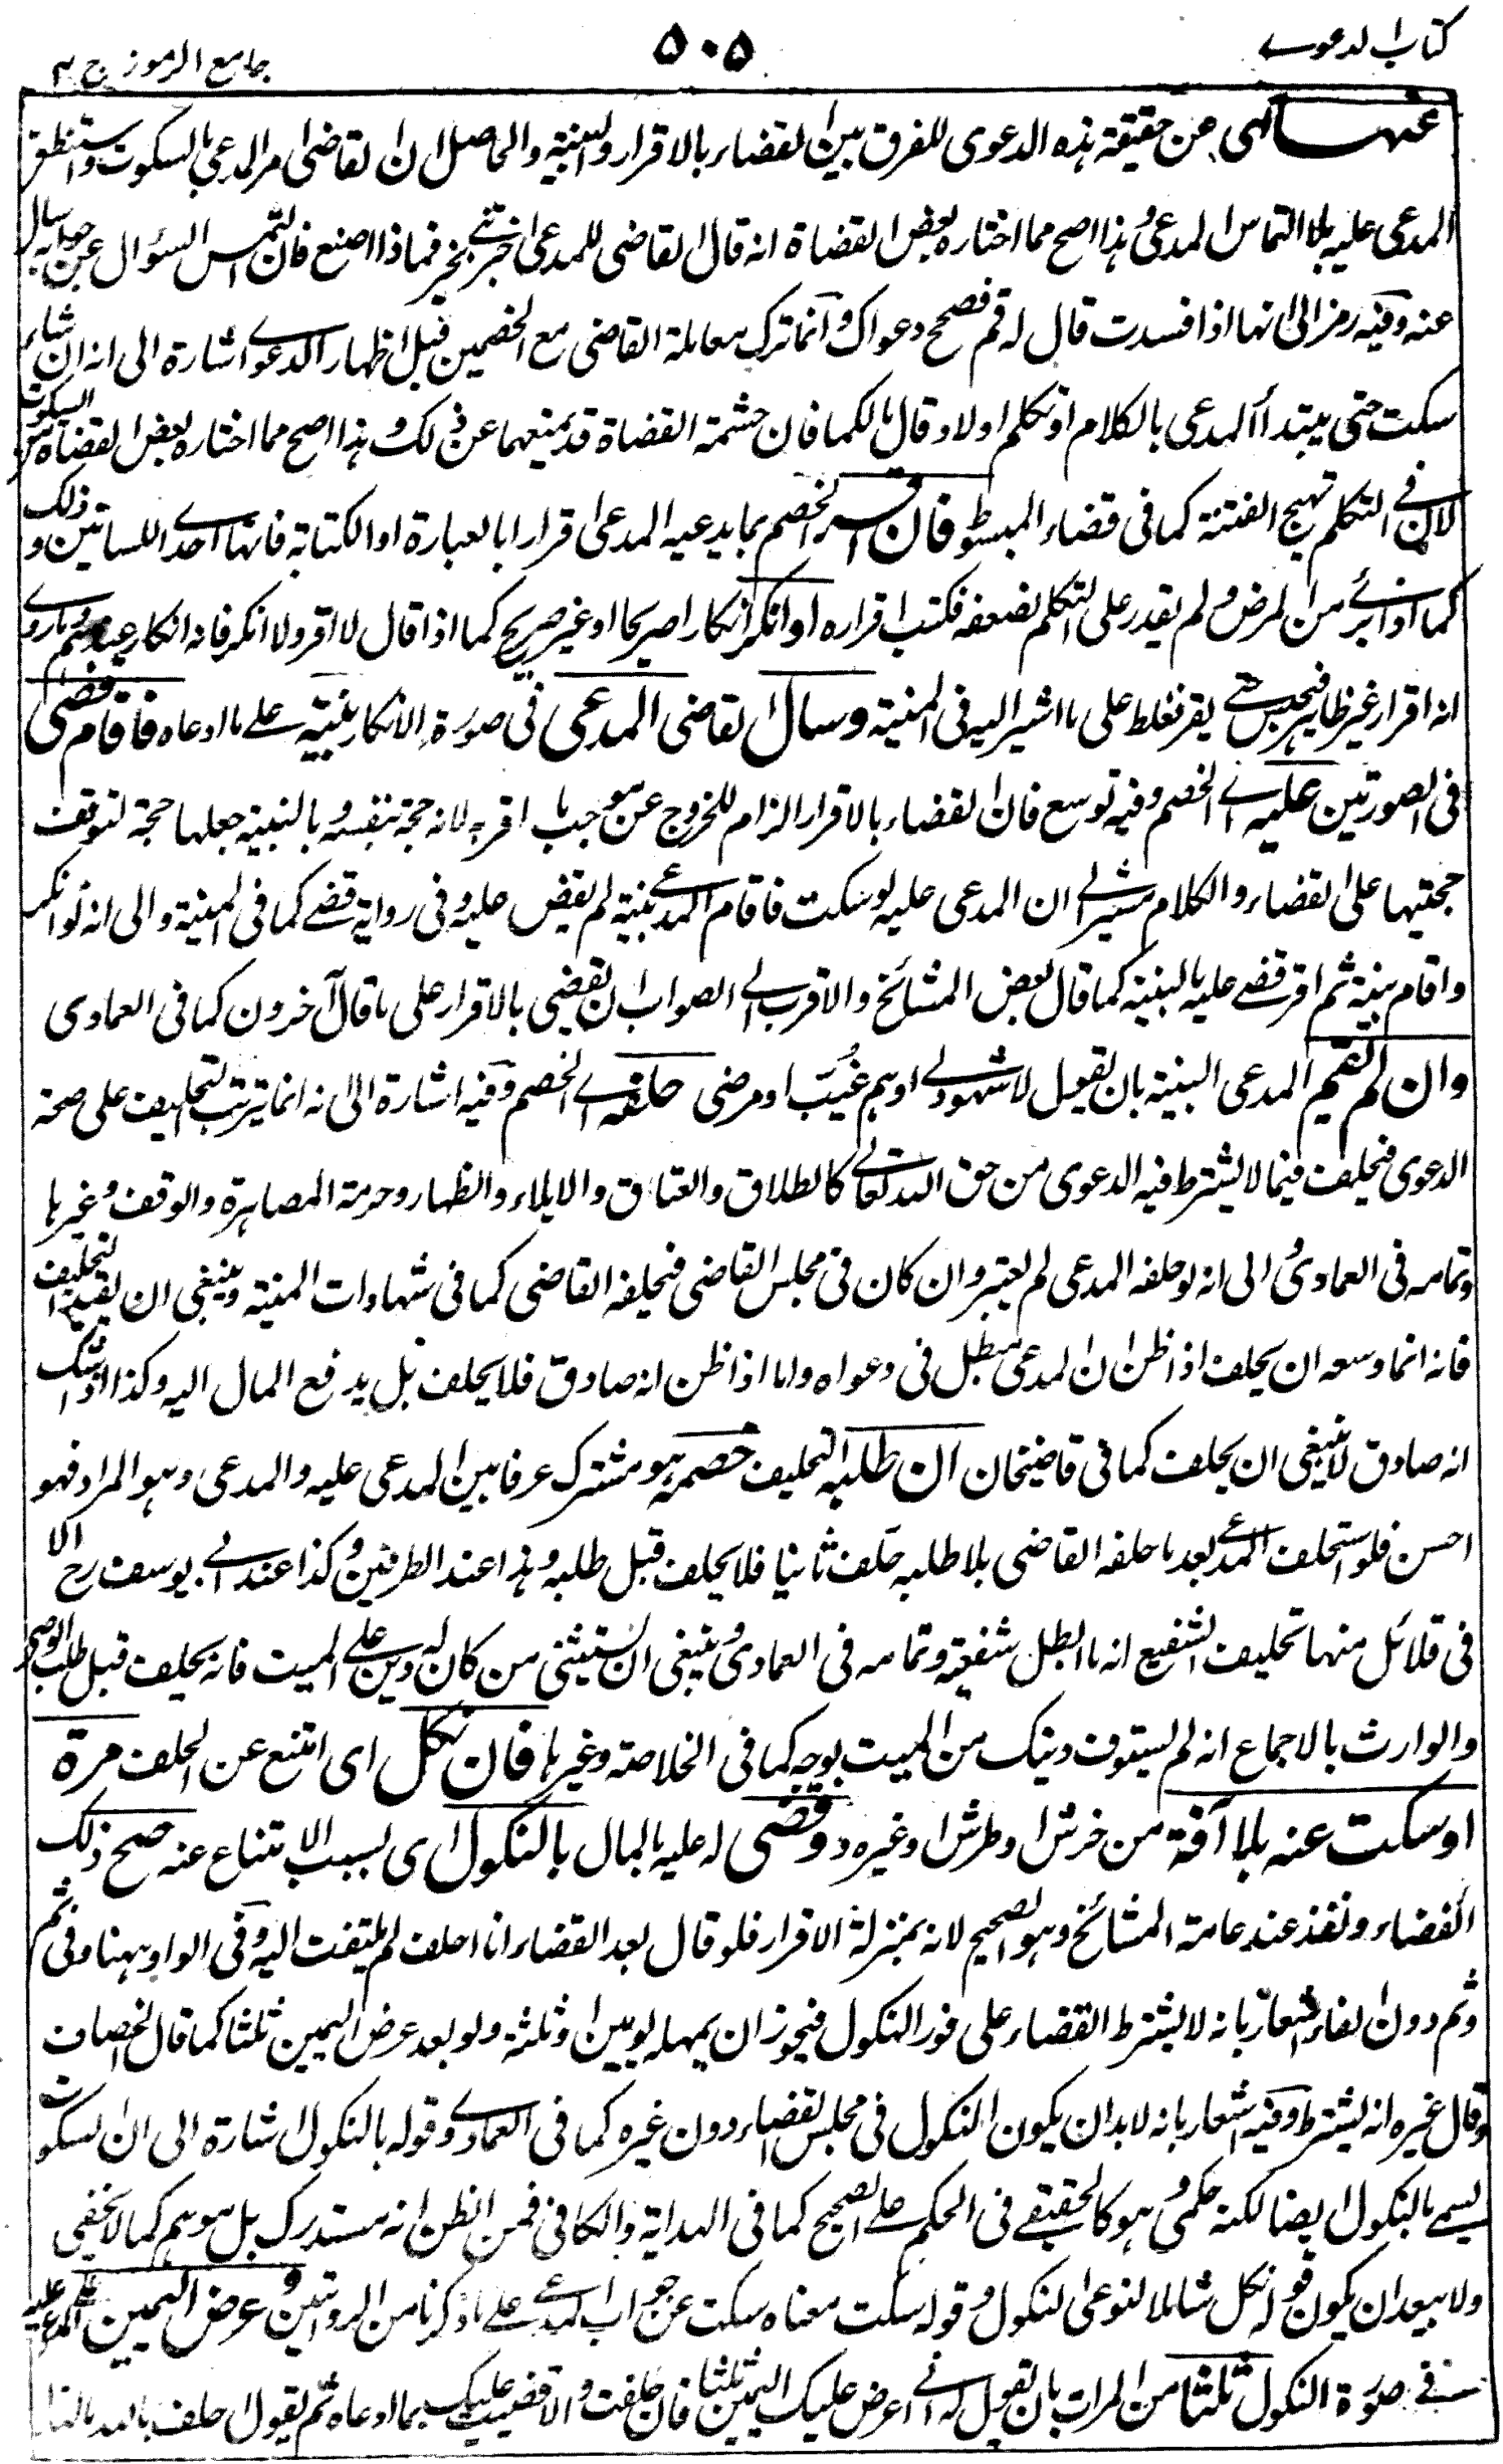 كتاب الدعوى
٥٠٥
جامع الرموز ج ٢
عنها اى عن حقيقة هذه الدعوى للفرق بين القضاء بالاقرار والبينة والحاصل ان القاضى امر المدعى بالسكوت واستنطق
المدعى عليه بلا التماس المدعى وهذا اصح مما اختاره بعض القضاة انه قال القاضى للمدعى اخبرتنى بخبر فماذا اصنع فان التمس السؤال عن جوابه سال
عنه وفيه رمز الى انها اذا فسدت قال له قم فصحح دعواك وانما ترك معاملة القاضى مع الخصمين قبل اظهار الدعوى اشارة الى انه ان شاء
سكت حتى يبتدأ المدعى بالكلام او تكلم اولا وقال مالكما فان حشمة القضاة قد يمنعهما عن ذلك وهذا اصح مما اختاره بعض القضاة السكوت
لان فى التكلم تهيج الفتنة كما فى قضاء المبسوط فان اقر الخصم بما يدعيه المدعى اقرارا بالعبارة او الكتابة فانها احدى اللسانين وذلك
كما اذا برئ من المرض ولم يقدر على التكلم لضعفه فكتب اقراره او انكر انكارا صريحا او غير صريح كما اذا قال لا اقر ولا انكر فانه انكار عندهم وما روى
انه اقرار غير ظاهر فيحبس حتى يقر فغلط على ما اشير اليه فى المنية وسال القاضى المدعى فى صورة الانكار بينة على ما ادعاه فاقام قضى
فى الصورتين عليه اى الخصم وفيه توسع فان القضاء بالاقرار الزام للخروج عن موجب ما اقر به لانه حجة بنفسه وبالبينة جعلها حجة لتوقف
حجتيها على القضاء والكلام مشير الى ان المدعى عليه لو سكت فاقام المدعى بينة لم يقض عليه وفى رواية قضى كما فى المنية والى انه لو انكر
واقام بينة ثم اقر قضى عليه بالبينة كما قال بعض المشائخ والاقرب الى الصواب ان يقضى بالاقرار على ما قال آخرون كما فى العمادى
وان لم يقم المدعى البينة بان يقول لا شهود لى او هم غيب او مرضى حلفه اى الخصم وفيه اشارة الى انه انما يترتب التحليف على صحة
الدعوى فيحلف فيما لا يشترط فيه الدعوى من حق الله تعالى كالطلاق والعتاق والايلاء والظهار وحرمة المصاهرة والوقف وغيرها
وتمامه فى العمادى والى انه لو حلفه المدعى لم يعتبر وان كان فى مجلس القاضى فيحلفه القاضى كما فى شهادات المنية وينبغى ان يقيد التحليف
فانه انما وسعه ان يحلف اذا ظن ان المدعى مبطل فى دعواه واما اذا ظن انه صادق فلا يحلف بل يدفع المال اليه وكذا اذا شك
انه صادق لا ينبغى ان يحلف كما فى قاضيخان ان طلبه التحليف خصمه هو مشترك عرفا بين المدعى عليه والمدعى وهو المراد فهو
احسن فلو استحلف المدعى بعد ما حلفه القاضى بلا طلبه حلف ثانيا فلا يحلف قبل طلبه وهذا عند الطرفين وكذا عند ابى يوسف رح الا
فى قلائل منها تحليف الشفيع انه ما ابطل شفعته وتمامه فى العمادى وينبغى ان يستثنى من كان له دين على الميت فانه يحلف قبل طلب الوصى
والوارث بالاجماع انه لم يستوف دينك من الميت بوجه كما فى الخلاصة وغيرها فان نكل اى امتنع عن الحلف مرة
او سكت عنه بلا آفة من خرش او طرش او غيره وقضى له عليه بالمال بالنكول اى بسبب الامتناع عنه صح ذلك
القضاء ونفذ عند عامة المشائخ وهو الصحيح لانه بمنزلة الاقرار فلو قال بعد القضاء انا احلف لم يلتفت اليه وفى الواو ههنا وفى ثم
وثم دون الفاء اشعار بانه لا يشترط القضاء على فور النكول فيجوز ان يمهله يومين او ثلثة ولو بعد عرض اليمين ثلثا كما قال الخصاف
وقال غيره انه يشترط وفيه اشعار بانه لا بد ان يكون النكول فى مجلس القضاء دون غيره كما فى العمادى وقوله بالنكول اشارة الى ان السكوت
يسمى بالنكول ايضا لكنه حكمى وهو كالحقيقى فى الحكم على الصحيح كما فى الهداية والكافى فمن الظن انه مستدرك بل موهم كما لا يخفى
ولا يبعد ان يكون قوله نكل شاملا لنوعى النكول وقوله سكت معناه سكت عن جواب المدعى على ما ذكرنا من الروايتين وعرض اليمين على المدعى عليه
فى صورة النكول ثلثا من المرات بان يقول له انى اعرض عليك اليمين ثلثا فان حلفت والا قضيت عليك بما ادعاه ثم يقول احلف بالله ما لهذا